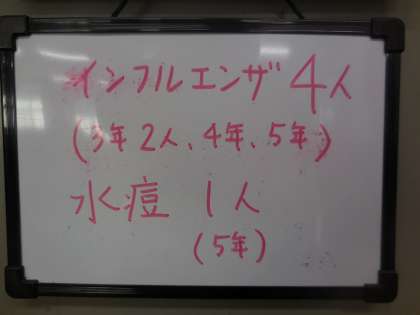 インフルエンザ4人
(3年2人、4年、5年)
水痘 1人
(5年)